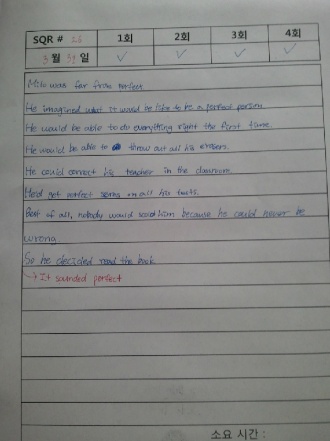 SQR # 28 1회 2회 3회 4회
3 월 31 일 ✓ ✓ ✓ ✓
Milo was far from perfect
He imagined what it would be like to be a perfect person.
He would be able to do everything right the first time.
He would be able to throw out all his erasers.
He could correct his teacher in the classroom.
He'd get perfect scores on all his tests.
Best of all, nobody would scold him because he could never be
wrong.
So he decided read the book
→ It sounded perfect
소요 시간 :